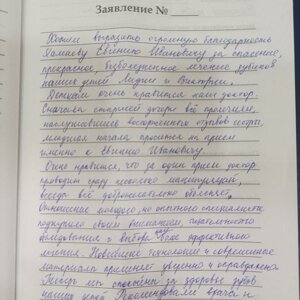 Заявление № ____
Хотим выразить огромную благодарность
Евгению Ивановичу за спасение,
прекрасное, безболезненное лечение зубиков
наших детей Лидии и Виктории.
Деткам очень нравится наш доктор.
Сначала старшей дочери всё пролечили,
наслушавшись восторженных отзывов сестры,
младшая начала проситься на приём
именно к Евгению Ивановичу.
Очень нравится, что за один приём доктор
проводит сразу несколько манипуляций,
всегда всё доброжелательно объясняет.
Отношение молодого, но опытного специалиста
подкупило своим вниманием, тщательного
обследования и выбора эффективного
лечения. Новейшие технологии и современные
материалы применяет уверенно и оправданно.
Теперь мы спокойны за здоровье зубов
наших детей. Рекомендовали врача и